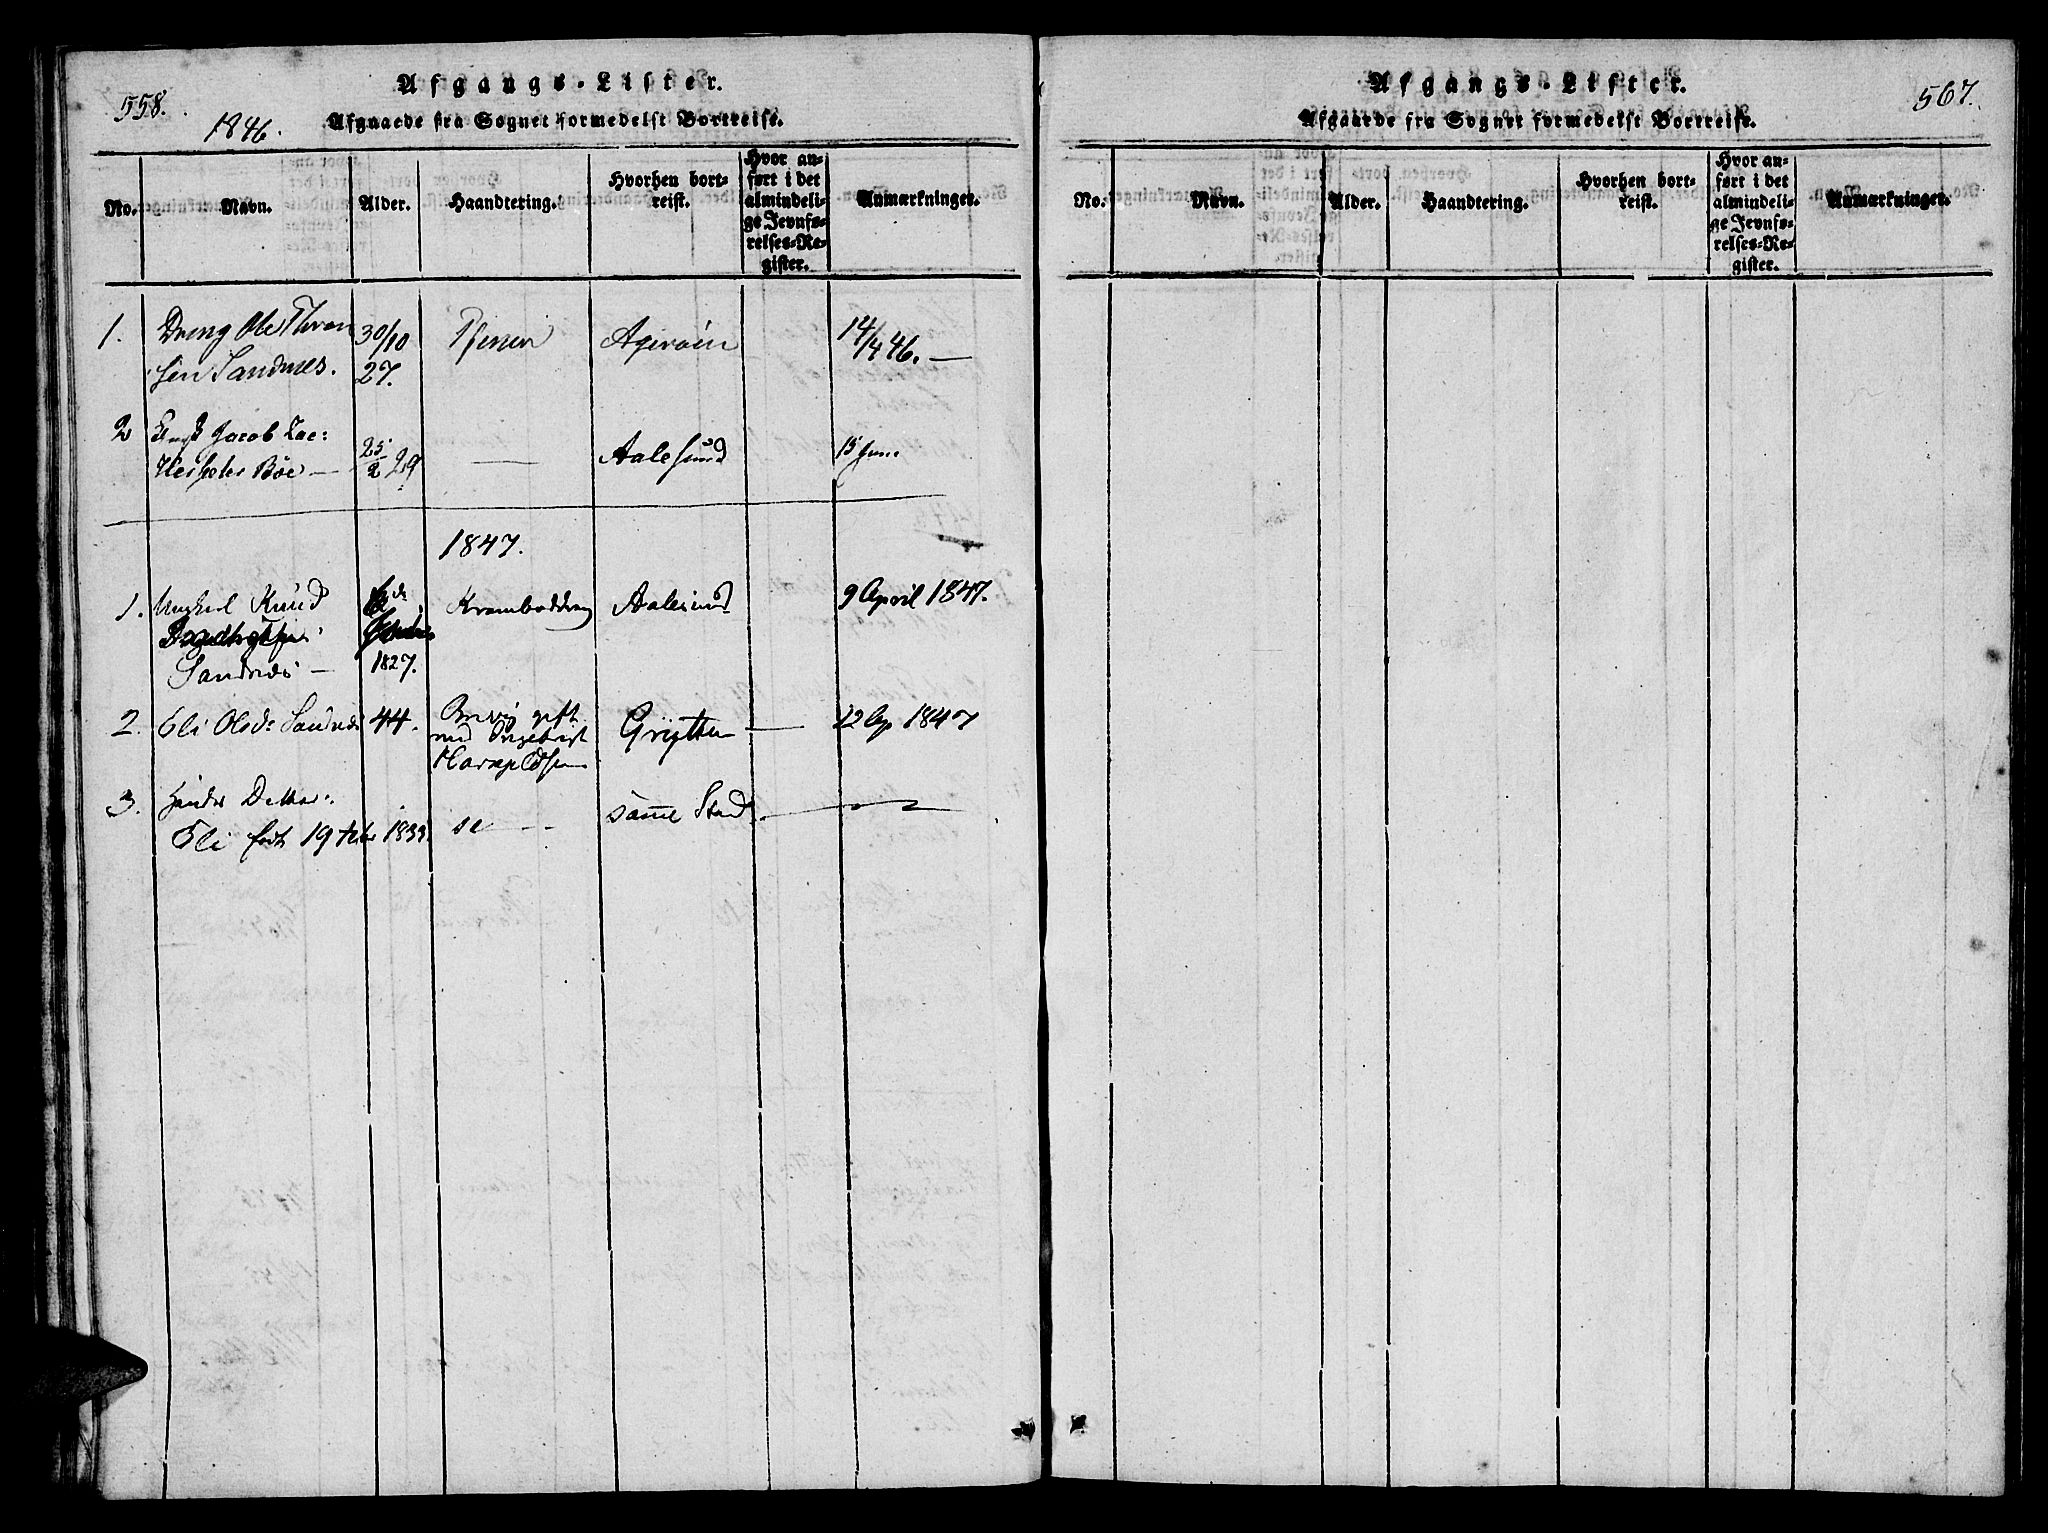 558.
1846.
Afgangs-Lister.
Afgaaede fra Sognet formedelst Bortreise.
No.
Navn.
Alder.
Haandtering.
Hvorhen bort-
reist.
Hvor an-
ført i det
almindeli-
ge Jevnfø-
relses-Re-
gister.
Anmærkninger.
1.
Dreng Ole
sen Sandnes.
30/10
27.
Tjener
Agerøen
14/4 46. —
2
Jacob
Böe —
25/2 29
—
Aalesund
15 Juni
1847.
1.
Ungkarl Knud
Sandnæs —
1827.
Aalesund
9 April 1847.
2.
Eli Olsd: Sandnæs
44.
gift
med Ingebrigt
Grytten —
12 Ap 1847
3.
Hendes Datter:
Eli født 19 Febr 1833.
samme Sted. —
Afgangs-Lister.
Afgaaede fra Sognet formedelst Bortreise.
567.
No.
Navn.
Alder.
Haandtering.
Hvorhen bort-
reist.
Hvor an-
ført i det
almindeli-
ge Jevnfø-
relses-Re-
gister.
Anmærkninger.